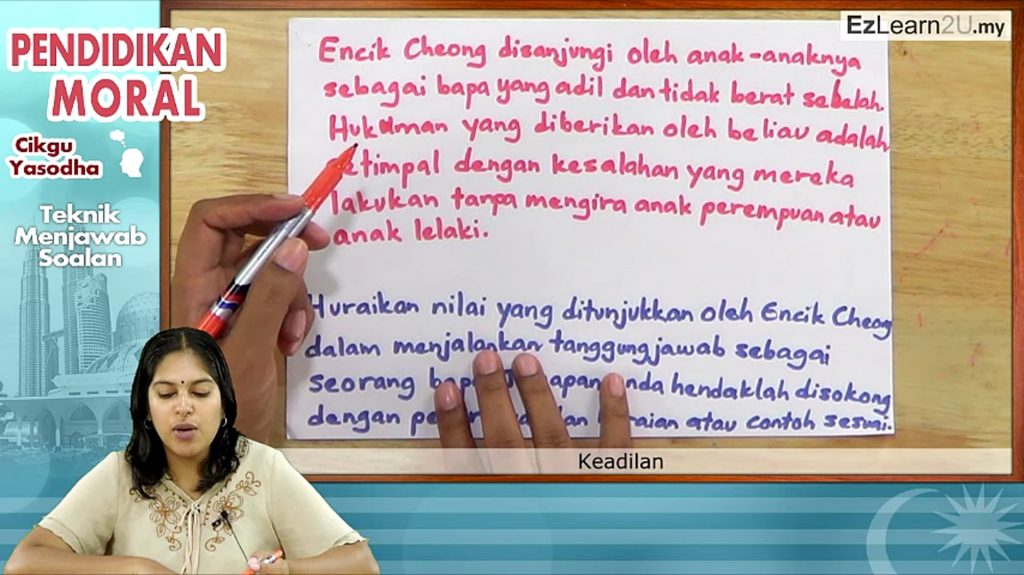 EzLearn2U.my
PENDIDIKAN
MORAL
Cikgu
Yasodha
Teknik
Menjawab
Soalan
Encik Cheong disanjungi oleh anak-anaknya
sebagai bapa yang adil dan tidak berat sebelah.
Hukuman yang diberikan oleh beliau adalah
setimpal dengan kesalahan yang mereka
lakukan tanpa mengira anak perempuan atau
anak lelaki.
Huraikan nilai yang ditunjukkan oleh Encik Cheong
dalam menjalankan tanggungjawab sebagai
seorang nda hendaklah disokong
dengan atau contoh sesuai.
Keadilan